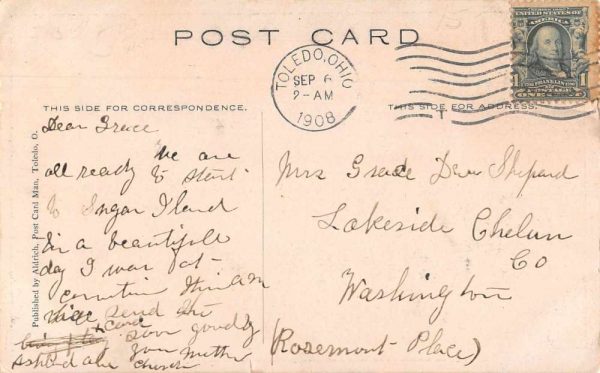 POST CARD
TOLEDO, OHIO
SEP 6
2-AM
1908
T
UNITED STATES OF
AMERICA
FRANKLIN
1
1
ONE
THIS SIDE FOR CORRESPONDENCE.
THIS SIDE FOR ADDRESS.
Published by Aldrich, Post Card Man, Toledo, O.
Dear Grace
We are
all ready to start
to Sugar Iland
a beautifull
day I was at
send
card
soon goodby
your Mother
Mrs Grace Shepard
Lakeside Chelan
Co
Washington
(Rosemont Place)